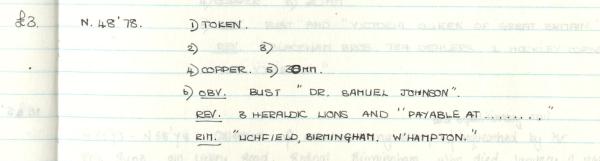 £3. N. 48'78. 1) TOKEN.
2) 3)
4) COPPER. 5) 30MM.
6) OBV. BUST "DR. SAMUEL JOHNSON".
REV. 3 HERALDIC LIONS AND "PAYABLE AT ........"
RIM. "LICHFIELD, BIRMINGHAM, W'HAMPTON."